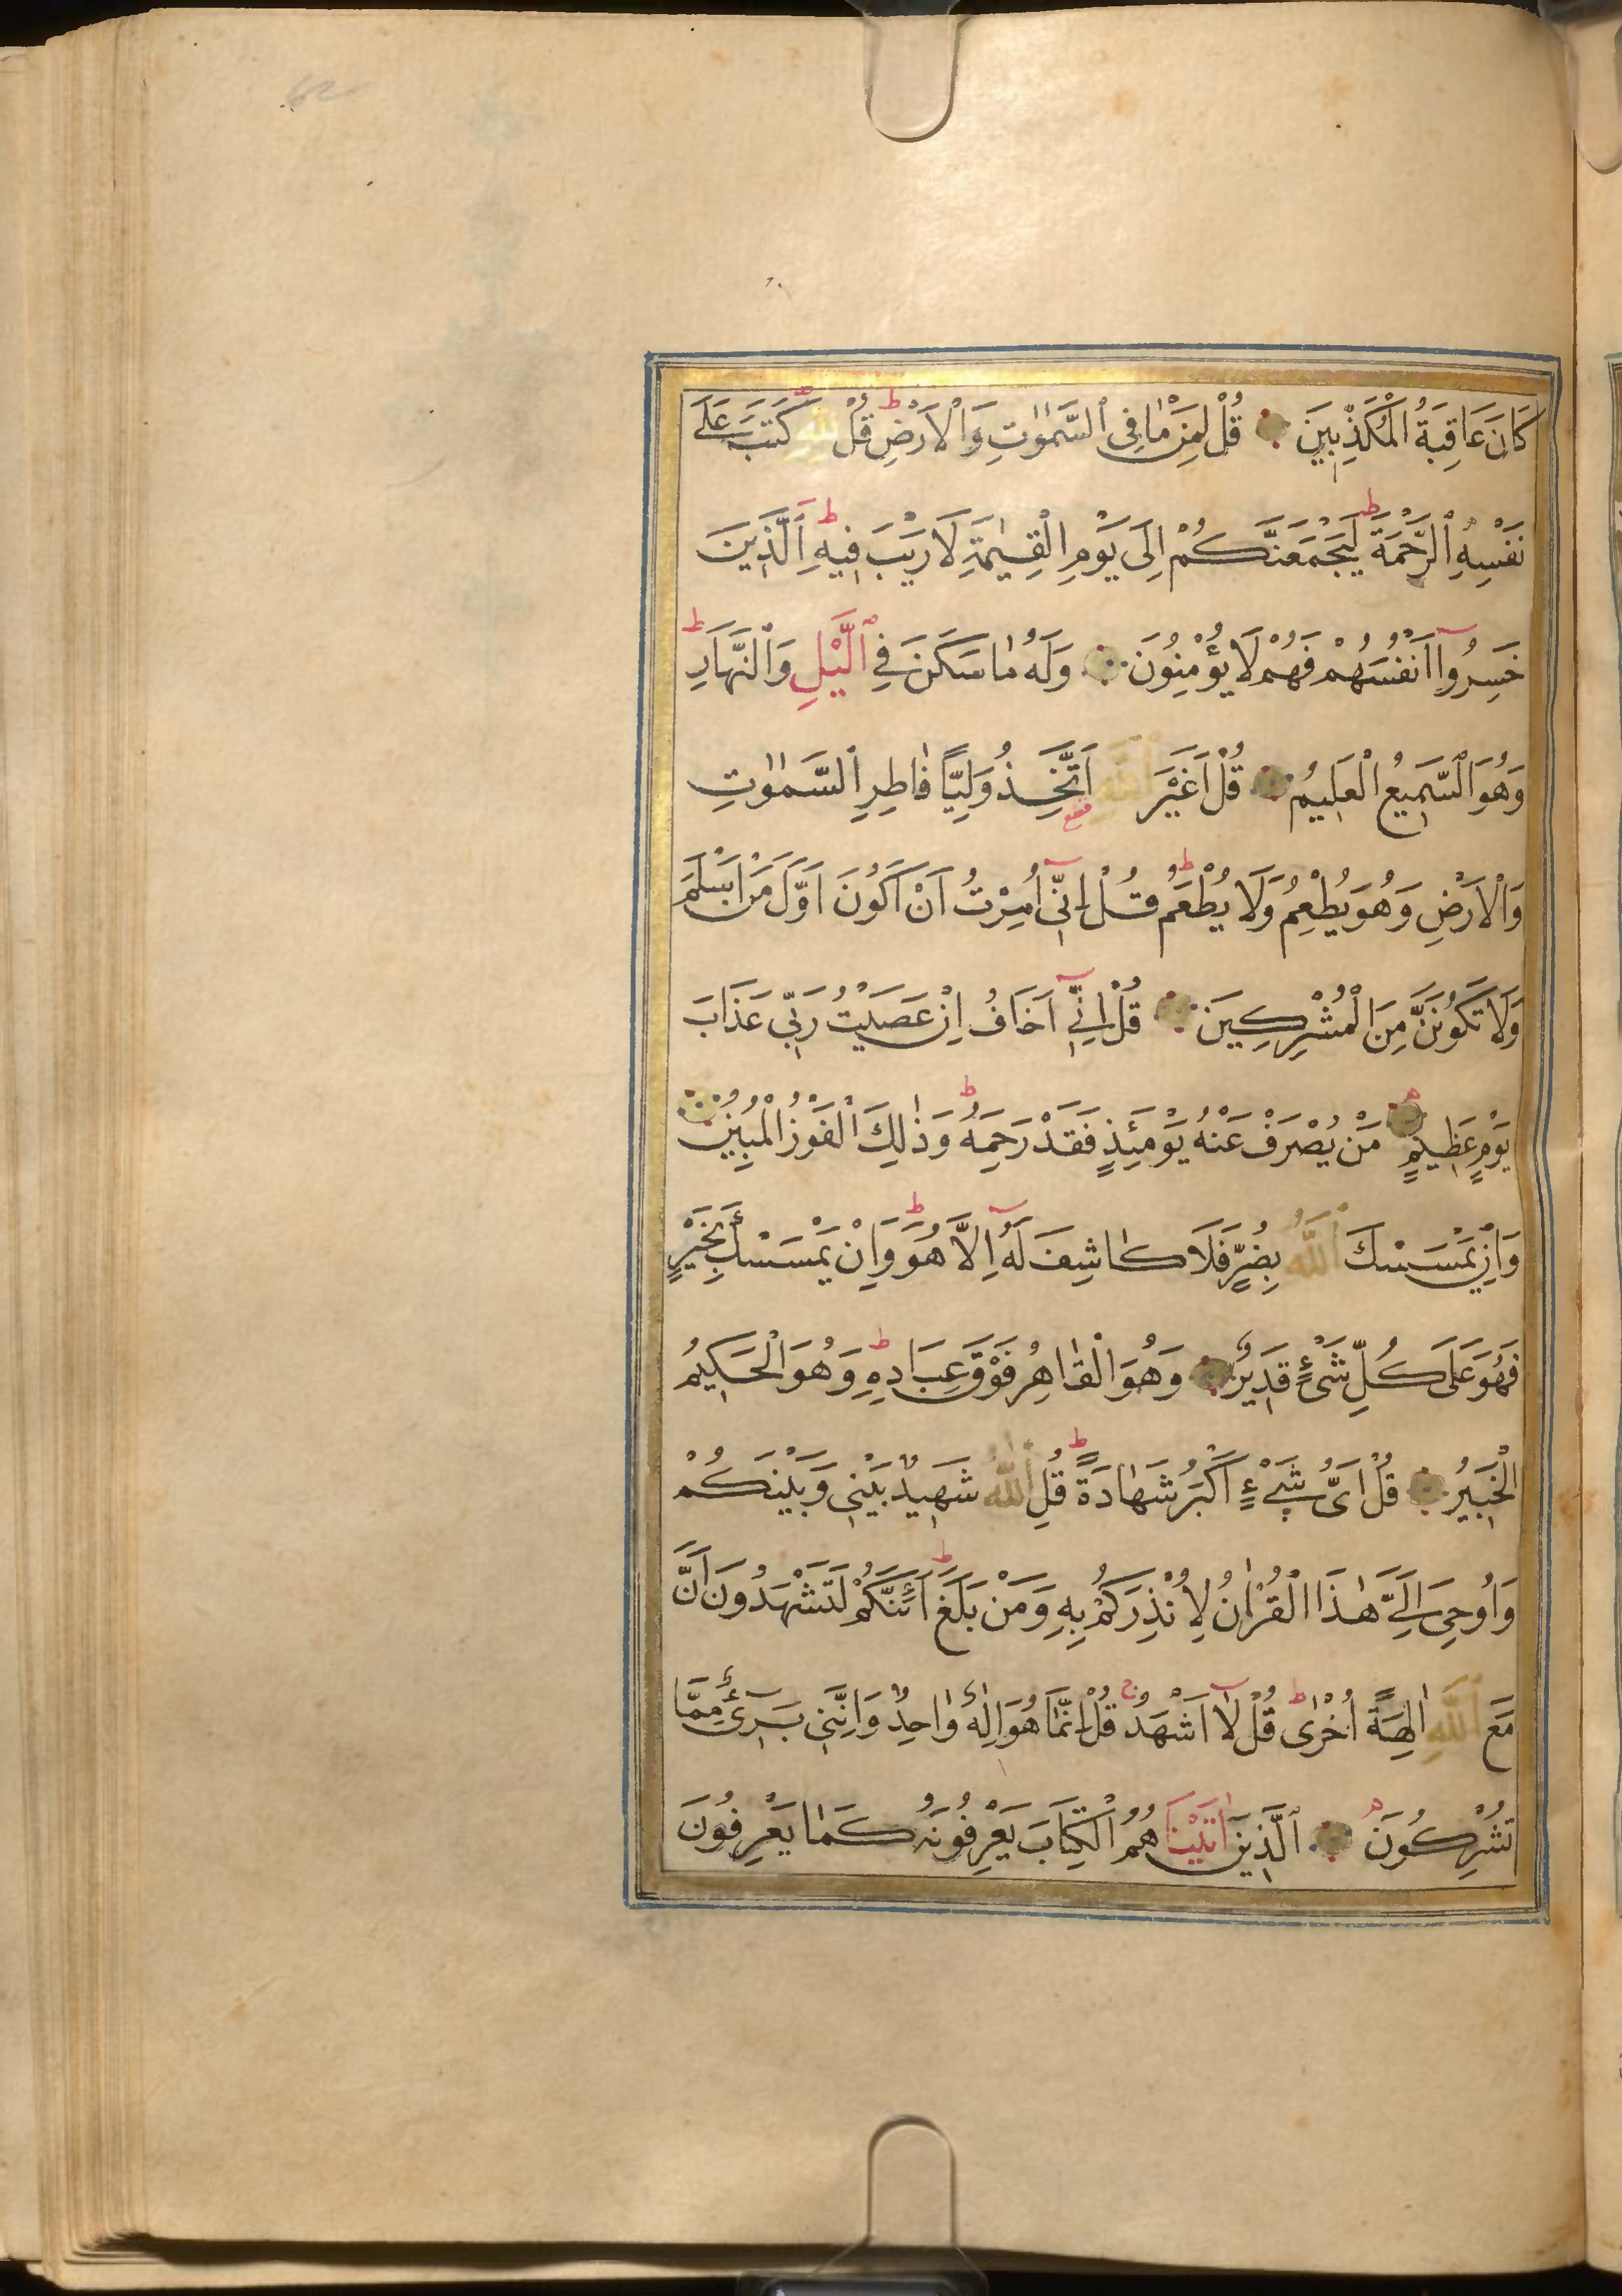 كَانَ عَاقِبَةُ الْمُكَذِّبِينَ قُلْ لِمَنْ مَا فِى السَّمٰوٰتِ وَالْاَرْضِ قُلْ كَتَبَ عَلٰى
نَفْسِهِ الرَّحْمَةَ لَيَجْمَعَنَّكُمْ اِلَى يَوْمِ الْقِيٰمَةِ لَا رَيْبَ فِيهِ اَلَّذِينَ
خَسِرُوا اَنْفُسَهُمْ فَهُمْ لَا يُؤْمِنُونَ وَلَهُ مَا سَكَنَ فِي الَّيْلِ وَالنَّهَارِ
وَهُوَ السَّمِيعُ الْعَلِيمُ قُلْ اَغَيْرَ اللّٰهِ اَتَّخِذُ وَلِيًّا فَاطِرِ السَّمٰوٰتِ
وَالْاَرْضِ وَهُوَ يُطْعِمُ وَلَا يُطْعَمُ قُلْ اِنِّى اُمِرْتُ اَنْ اَكُونَ اَوَّلَ مَنْ اَسْلَمَ
وَلَا تَكُونَنَّ مِنَ الْمُشْرِكِينَ قُلْ اِنِّي اَخَافُ اِنْ عَصَيْتُ رَبِّى عَذَابَ
يَوْمٍ عَظِيمٍ مَنْ يُصْرَفْ عَنْهُ يَوْمَئِذٍ فَقَدْ رَحِمَهُ وَذٰلِكَ الْفَوْزُ الْمُبِينُ
وَاِنْ يَمْسَسْكَ اللّٰهُ بِضُرٍّ فَلَا كَاشِفَ لَهُ اِلَّا هُوَ وَاِنْ يَمْسَسْكَ بِخَيْرٍ
فَهُوَ عَلَى كُلِّ شَىْءٍ قَدِيرٌ وَهُوَ الْقَاهِرُ فَوْقَ عِبَادِهِ وَهُوَ الْحَكِيمُ
الْخَبِيرُ قُلْ اَىُّ شَيْءٍ اَكْبَرُ شَهَادَةً قُلِ اللّٰهُ شَهِيدٌ بَيْنِى وَبَيْنَكُمْ
وَاُوحِىَ اِلَيَّ هٰذَا الْقُرْاٰنُ لِاُنْذِرَكُمْ بِهِ وَمَنْ بَلَغَ اَئِنَّكُمْ لَتَشْهَدُونَ اَنَّ
مَعَ اللّٰهِ اٰلِهَةً اُخْرٰى قُلْ لَا اَشْهَدُ قُلْ اِنَّمَا هُوَ اِلٰهٌ وَاحِدٌ وَاِنَّنِى بَرِىءٌ مِمَّا
تُشْرِكُونَ اَلَّذِينَ اٰتَيْنَا هُمُ الْكِتَابَ يَعْرِفُونَهُ كَمَا يَعْرِفُونَ